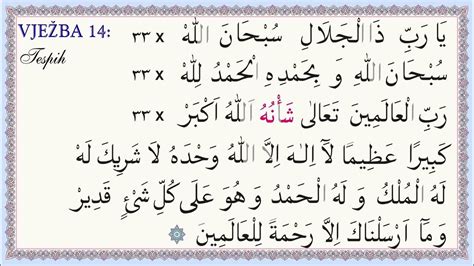 VJEŽBA 14:
Tespih
يَا رَبِّ ذَاالْجَلَالِ سُبْحَانَ اللّٰهِ ٣٣ x
سُبْحَانَ اللّٰهِ وَ بِحَمْدِهِ اَلْحَمْدُ لِلّٰهِ ٣٣ x
رَبِّ الْعَالَمِينَ تَعَالٰى شَأْنُهُ اَللّٰهُ اَكْبَرْ ٣٣ x
كَبِيرًا عَظِيمًا لَآ اِلٰهَ اِلَّا اللّٰهُ وَحْدَهُ لَا شَرِيكَ لَهُ
لَهُ الْمُلْكُ وَ لَهُ الْحَمْدُ وَ هُوَ عَلَى كُلِّ شَئٍْ قَدِيرْ
وَ مَآ اَرْسَلْنَاكَ اِلَّا رَحْمَةً لِلْعَالَمِينَ